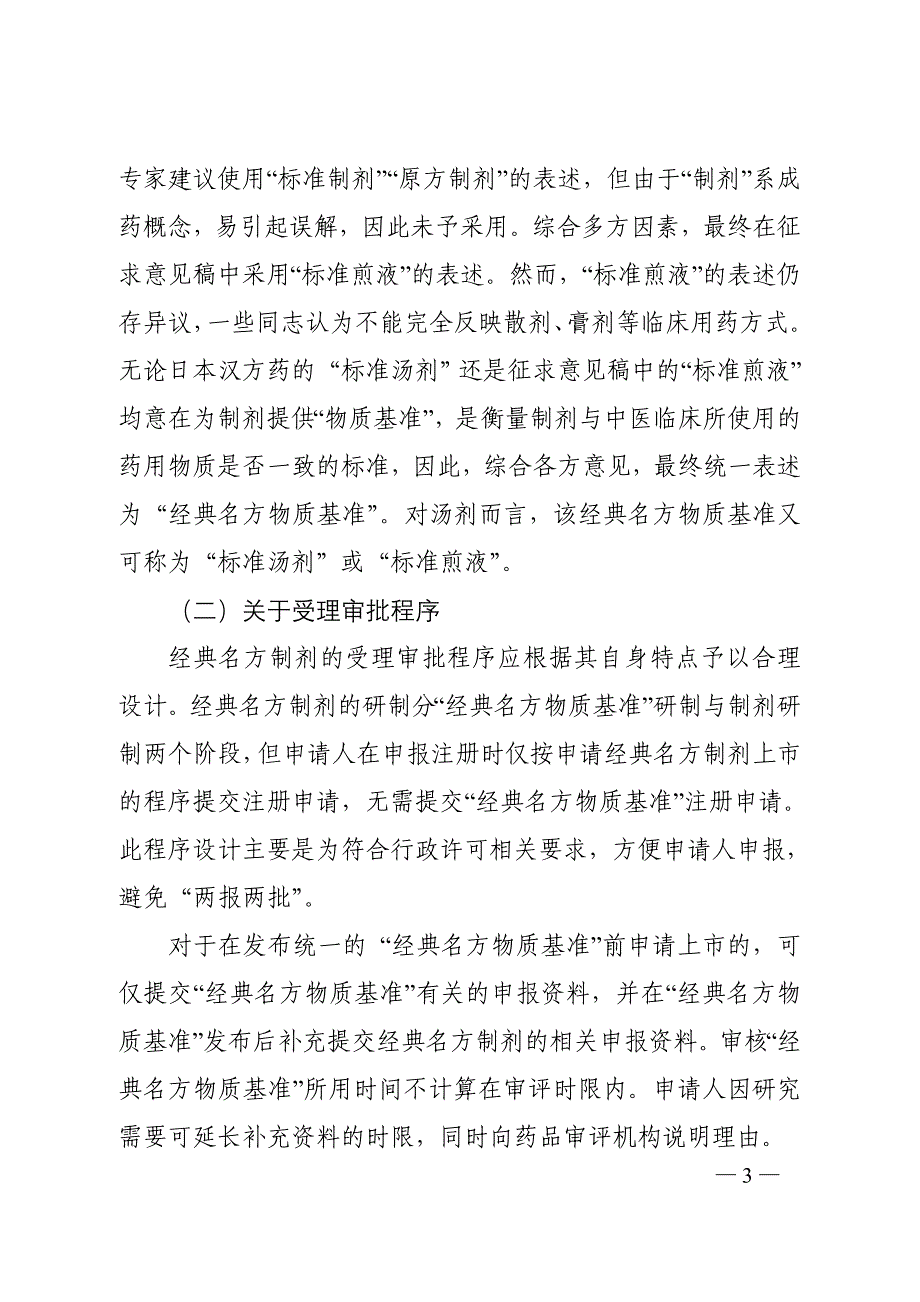 专家建议使用“标准制剂”“原方制剂”的表述，但由于“制剂”系成
药概念，易引起误解，因此未予采用。综合多方因素，最终在征
求意见稿中采用“标准煎液”的表述。然而，“标准煎液”的表述仍
存异议，一些同志认为不能完全反映散剂、膏剂等临床用药方式。
无论日本汉方药的“标准汤剂”还是征求意见稿中的“标准煎液”
均意在为制剂提供“物质基准”，是衡量制剂与中医临床所使用的
药用物质是否一致的标准，因此，综合各方意见，最终统一表述
为“经典名方物质基准”。对汤剂而言，该经典名方物质基准又
可称为“标准汤剂”或“标准煎液”。
（二）关于受理审批程序
经典名方制剂的受理审批程序应根据其自身特点予以合理
设计。经典名方制剂的研制分“经典名方物质基准”研制与制剂研
制两个阶段，但申请人在申报注册时仅按申请经典名方制剂上市
的程序提交注册申请，无需提交“经典名方物质基准”注册申请。
此程序设计主要是为符合行政许可相关要求，方便申请人申报，
避免“两报两批”。
对于在发布统一的“经典名方物质基准”前申请上市的，可
仅提交“经典名方物质基准”有关的申报资料，并在“经典名方物
质基准”发布后补充提交经典名方制剂的相关申报资料。审核“经
典名方物质基准”所用时间不计算在审评时限内。申请人因研究
需要可延长补充资料的时限，同时向药品审评机构说明理由。
— 3 —